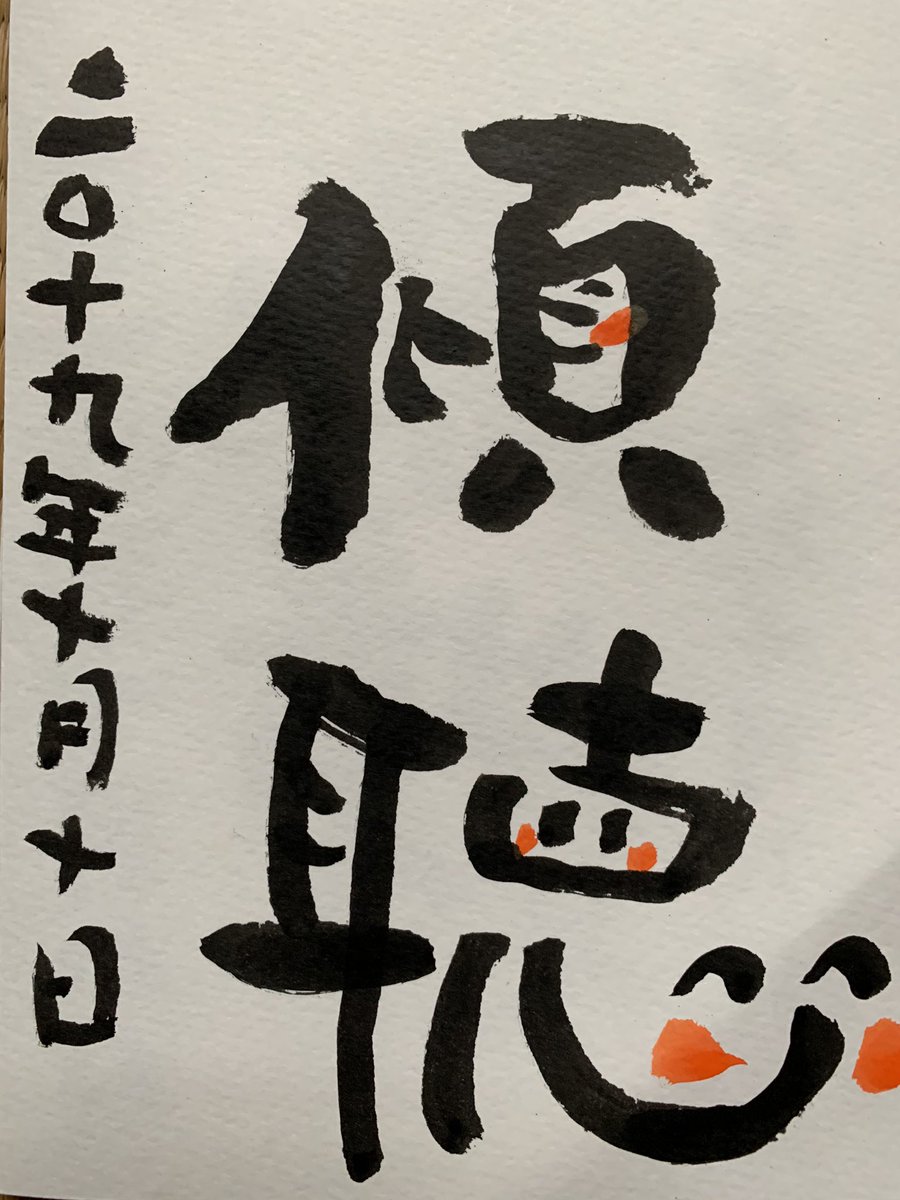 傾聴
二〇十九年十月十日